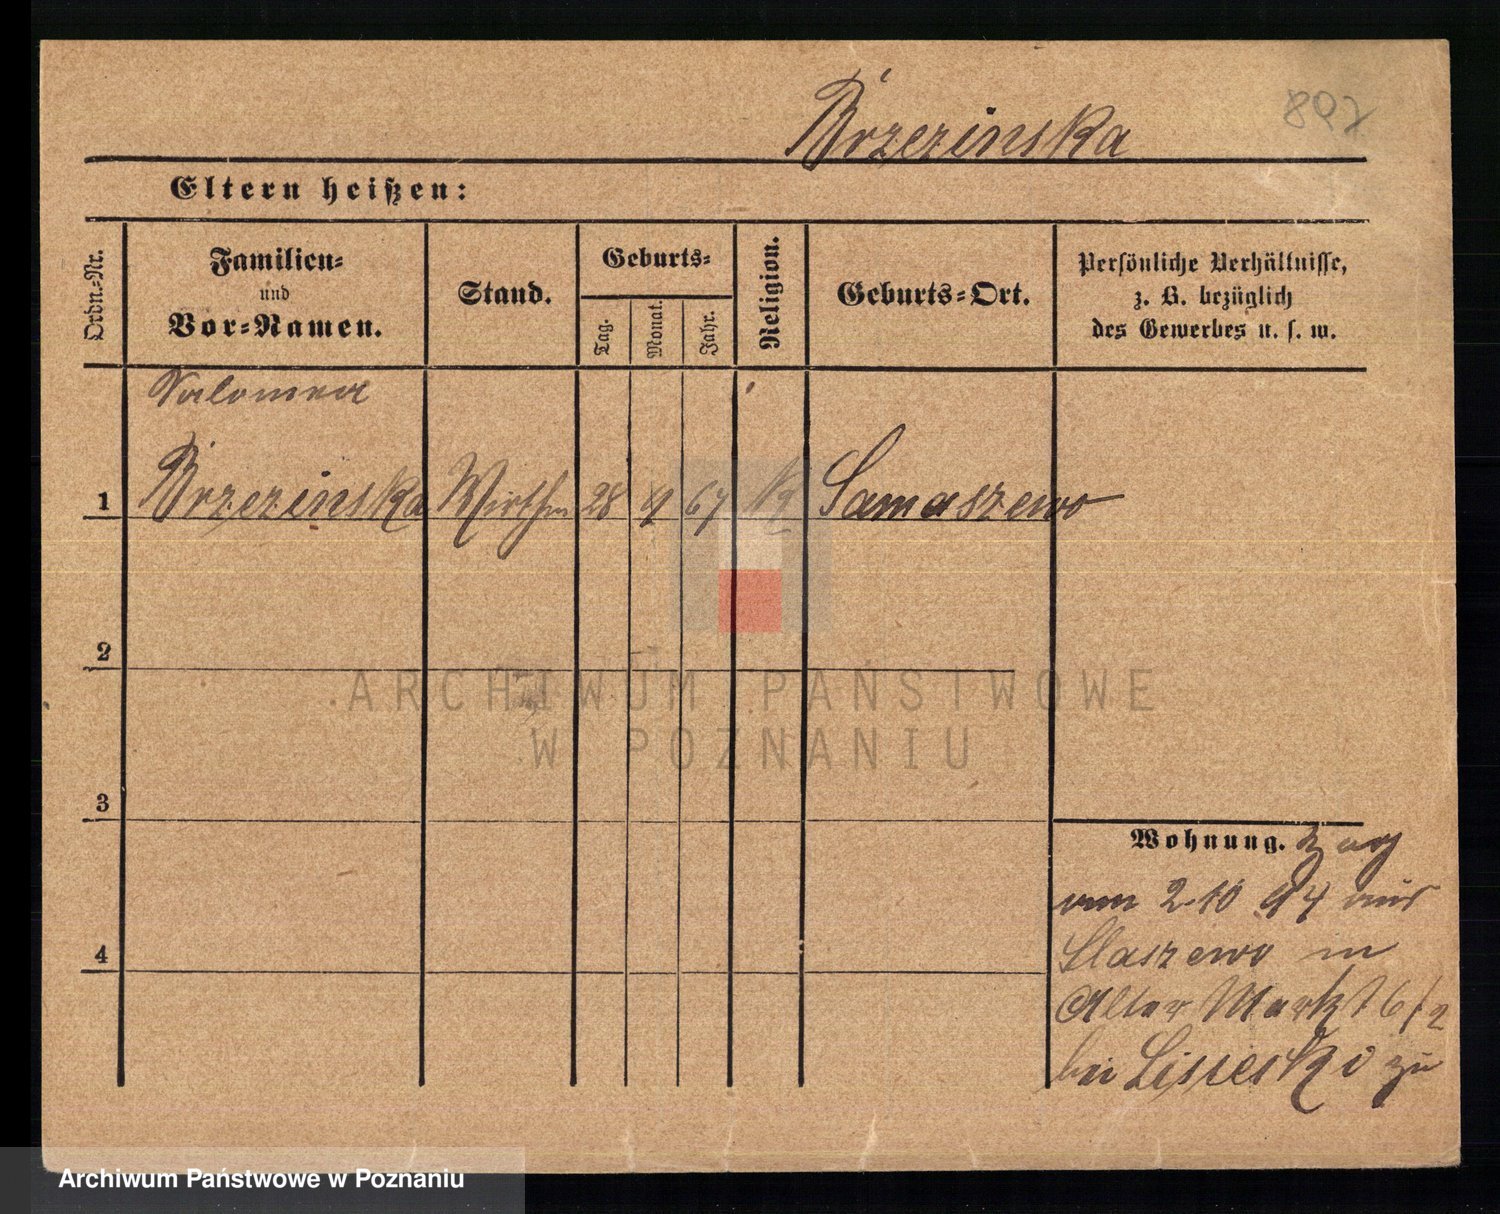 Brzezinska
897
Eltern heißen:
Ordn.-Nr.
Familien-
und
Vor-Namen.
Stand.
Geburts-
Tag.
Monat.
Jahr.
Religion.
Geburts-Ort.
Persönliche Verhältnisse,
z. B. bezüglich
des Gewerbes u. s. w.
Salomea
1 Brzezinska Wirthin 28 9 67 K Samaszewo
2
ARCHIWUM PAŃSTWOWE
W POZNANIU
3
Wohnung. Zuzug
vom 2.10 94 aus
Slaszewo in
4
Alter Markt 6/2
bei Lisieski zu
Archiwum Państwowe w Poznaniu